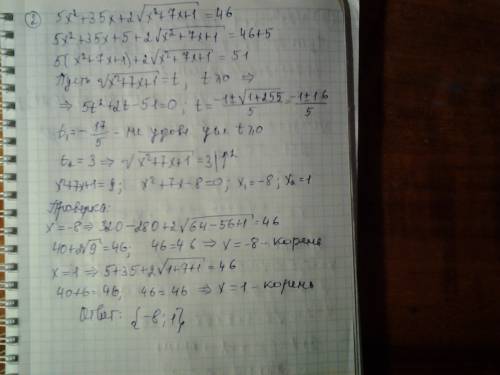 ② 5x²+35x+2√(x²+7x+1)=46
5x²+35x+5+2√(x²+7x+1)=46+5
5(x²+7x+1)+2√(x²+7x+1)=51
Пусть √(x²+7x+1)=t, t≥0 ⇒
⇒ 5t²+2t-51=0; t=(-1±√(1+255))/5=(-1±16)/5
t₁=-17/5 - не удовл. усл. t≥0
t₂=3 ⇒ √(x²+7x+1)=3|↑²
x²+7x+1=9; x²+7x-8=0; x₁=-8; x₂=1
Проверка:
x=-8 ⇒ 320-280+2√(64-56+1)=46
40+2√9=46; 46=46 ⇒ x=-8 - корень
x=1 ⇒ 5+35+2√(1+7+1)=46
40+6=46, 46=46 ⇒ x=1 - корень
Ответ: {-8; 1}